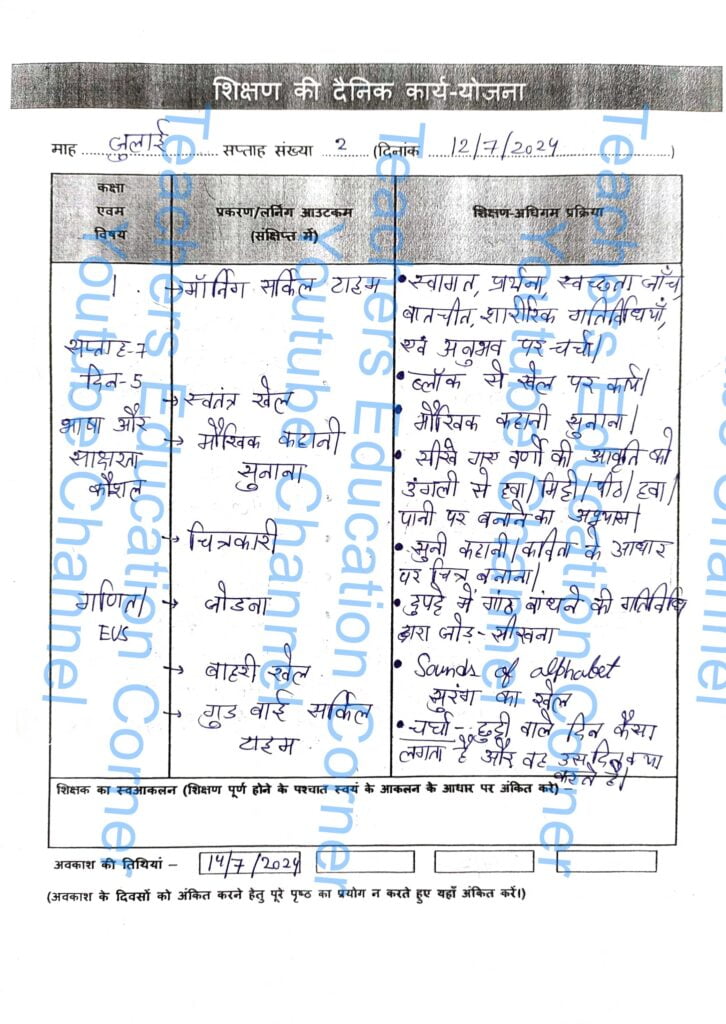 शिक्षण की दैनिक कार्य-योजना
माह जुलाई सप्ताह संख्या 2 (दिनांक 12/7/2024)
कक्षा
एवम
विषय
प्रकरण/लर्निंग आउटकम
(संक्षिप्त में)
शिक्षण-अधिगम प्रक्रिया
1.
सप्ताह-7
दिन-5
भाषा और
साक्षरता
कौशल
गणित/
EVS
→ मॉर्निंग सर्किल टाइम
→ स्वतंत्र खेल
→ मौखिक कहानी
सुनाना
→ चित्रकारी
→ जोडना
→ बाहरी खेल
→ गुड बाई सर्किल
टाइम
• स्वागत, प्रार्थना, स्वच्छता जाँच,
बातचीत, शारीरिक गतिविधियाँ,
एवं अनुभव पर चर्चा।
• ब्लॉक से खेल पर कार्य।
• मौखिक कहानी सुनाना।
• सीखे गए वर्णों की आकृति को
उंगली से हवा/मिट्टी/पीठ/हवा/
पानी पर बनाने का अभ्यास।
• सुनी कहानी/कविता के आधार
पर चित्र बनाना।
• दुपट्टे में गांठ बांधने की गतिविधि
द्वारा जोड़-सीखना
• Sounds of alphabet
सुरंग का खेल
• चर्चा - छुट्टी वाले दिन कैसा
लगता है और वह उस दिन क्या
करते है।
शिक्षक का स्वआकलन (शिक्षण पूर्ण होने के पश्चात स्वयं के आकलन के आधार पर अंकित करे) –
अवकाश की तिथियां – 14/7/2024
(अवकाश के दिवसों को अंकित करने हेतु पूरे पृष्ठ का प्रयोग न करते हुए यहाँ अंकित करें।)
Teachers Education Corner
Youtube Channel
Teachers Education Corner
Youtube Channel
Teachers Education Corner
Youtube Channel